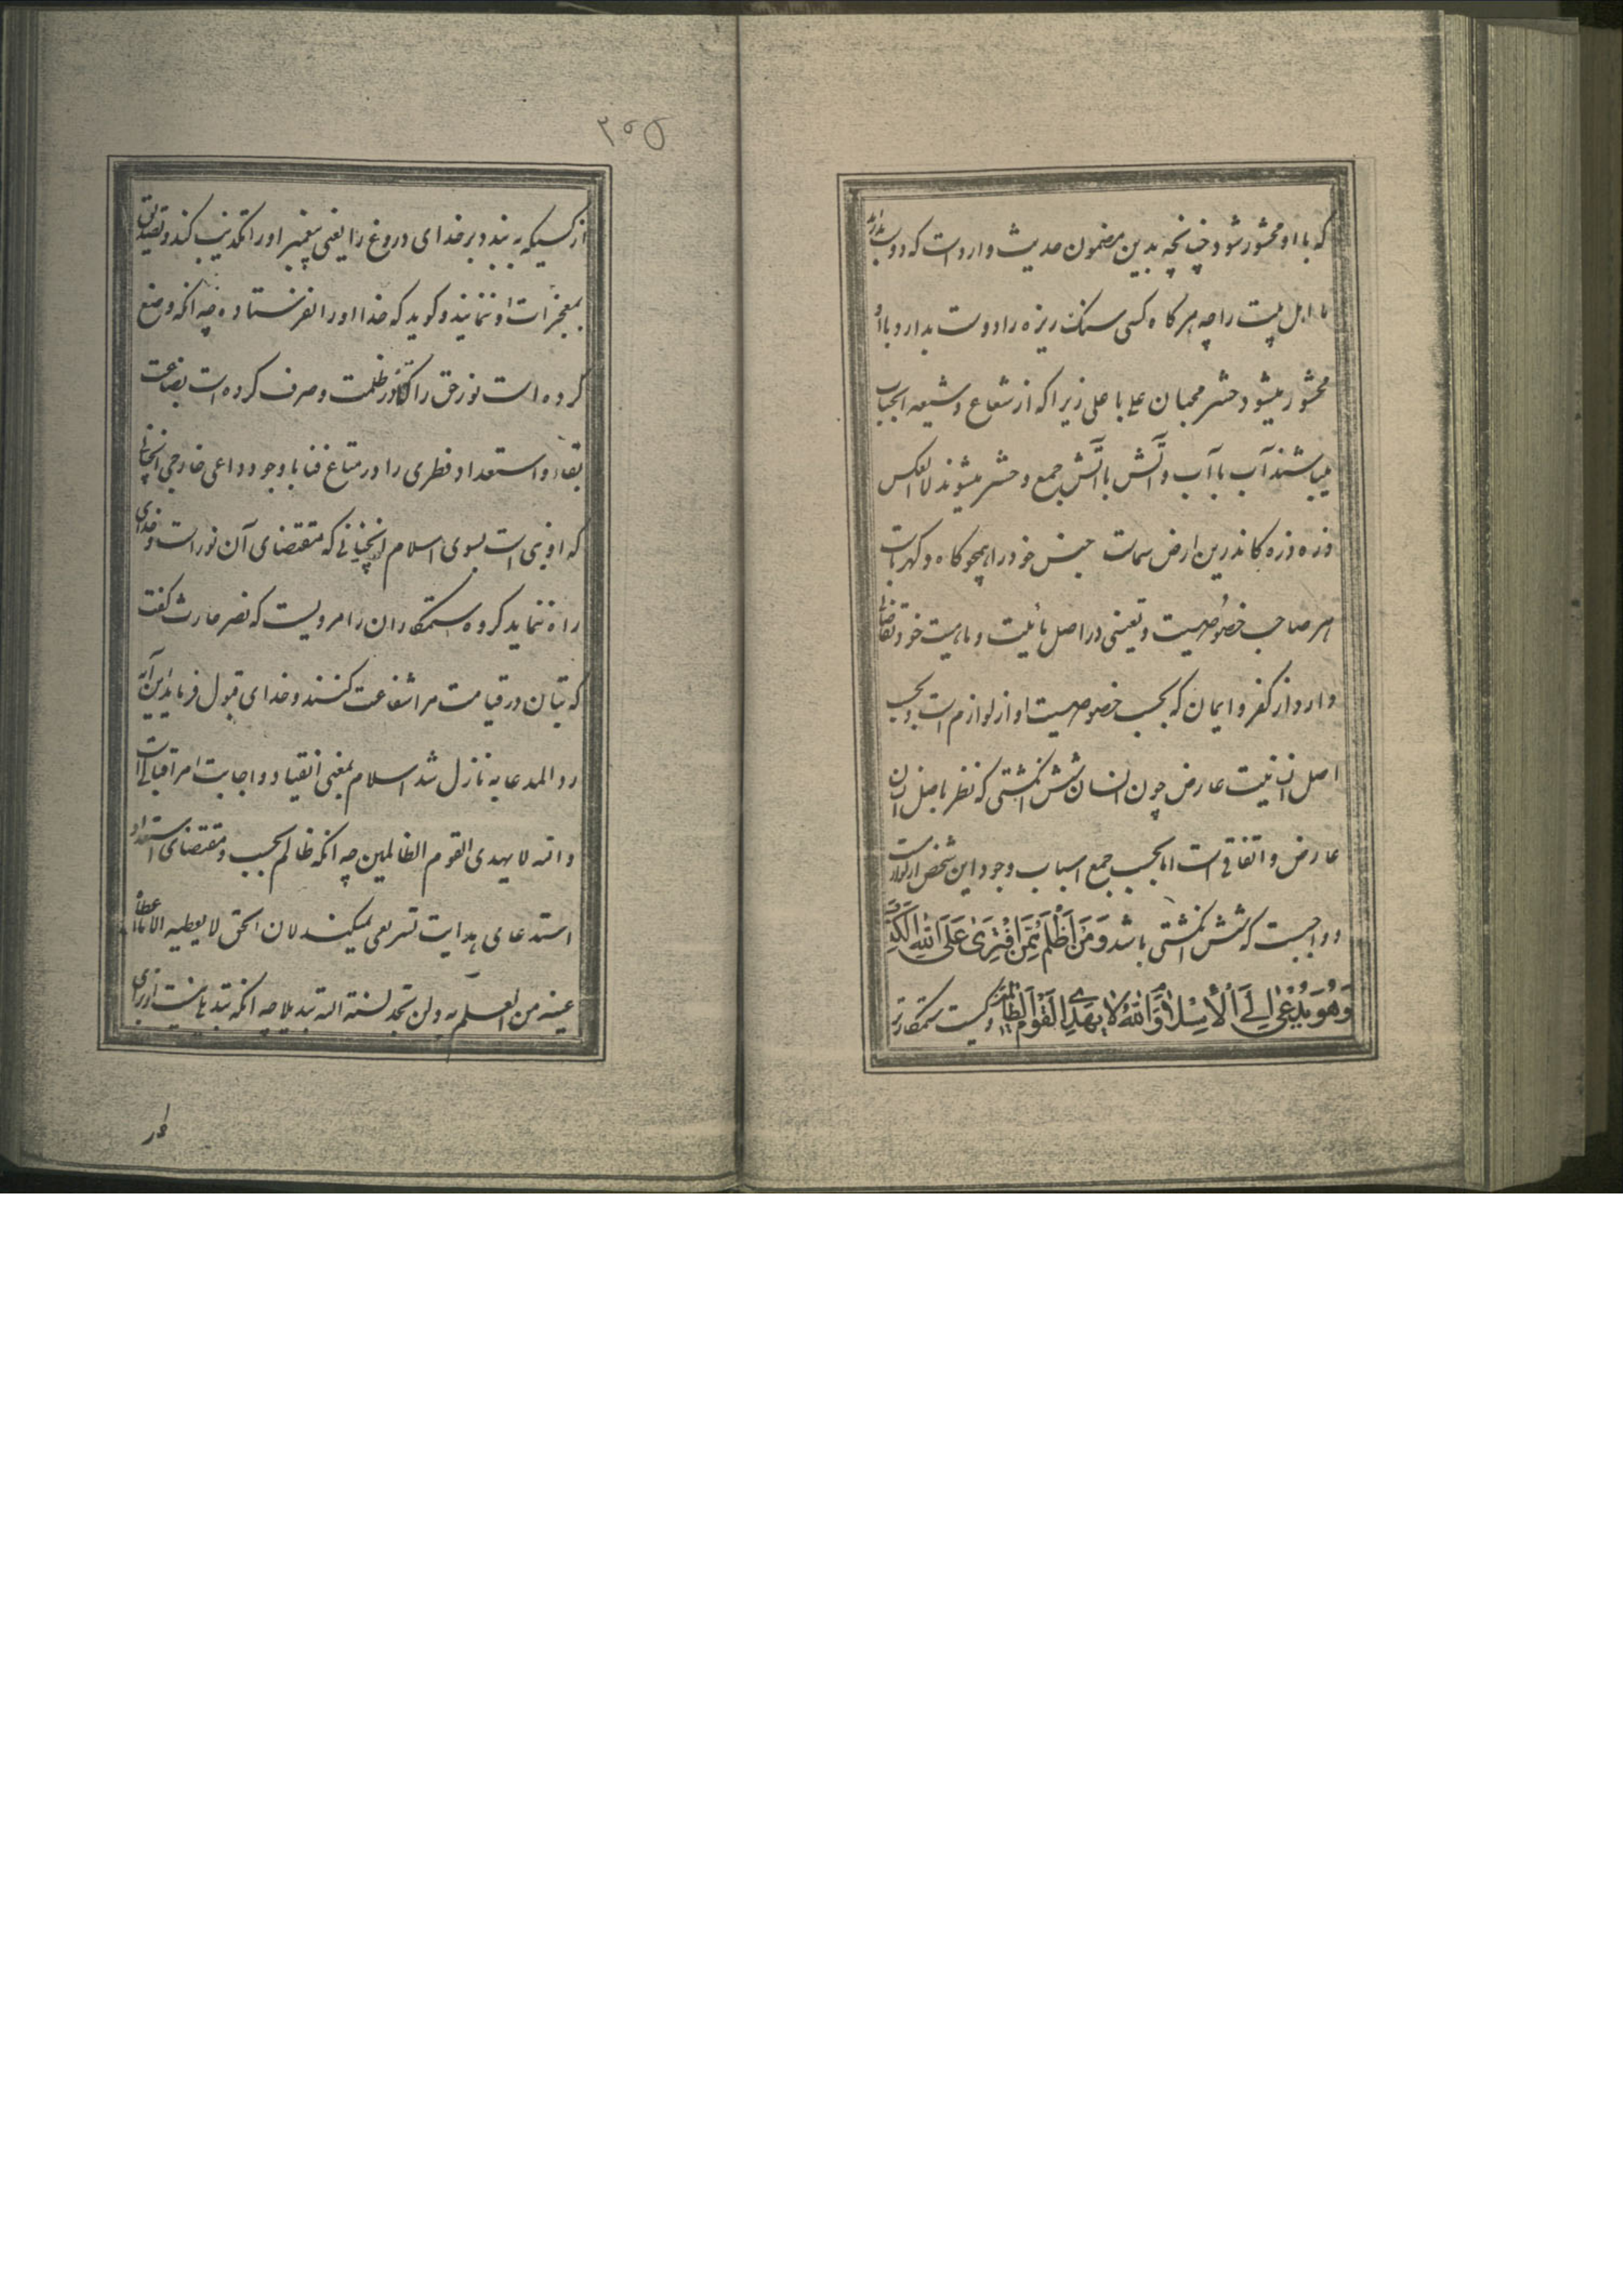 که با او محشور شود چنانچه بدین مضمون حدیث وارد است که دوست بدارید
ما اهل بیت را چه هر کاه کسی سنک ریزه را دوست بدارد با او
محشور میشود حشر محبان علی با علی زیرا که از شعاع و شیعه انجناب
میباشند آب با آب و آتش با آتش جمع و حشر میشوند لا العکس
ذره ذره کاندرین ارض سماست جنس خود را همچو کاه و کهرباست
هر صاحب خصوصیت و تعینی در اصل مائیت و ماهیت خود تقاضا
دارد از کفر و ایمان که بحسب خصوصیت او از لوازم است و بحسب
اصل انسانیت عارض چون انسان شش انکشتی که نظر باصل انسان
عارض و اتفاقی است اما بحسب جمع اسباب وجود این شخص از لوازمست
و واجبست که شش انکشتی باشد وَمَنْ اَظْلَمُ مِمَّنِ افْتَرٰی عَلَی اللّٰهِ الْکَذِبَ
وَهُوَ یُدْعٰی اِلَی الْاِسْلٰامِ وَاللّٰهُ لٰا یَهْدِی الْقَوْمَ الظّٰالِمینَ و کیست ستمکارتر
۲۰۵
از کسیکه به بندد بر خدای دروغ را یعنی پیغمبر او را تکذیب کند و تصدیق
بمعجزات او ننماید و کوید که خدا او را نفرستاده چه انکه وضع
کرده است نور حق را در ظلمت و صرف کرده است بضاعت
بقاء و استعداد فطری را در متاع فنا با وجود داعی خارجی انچنانی
که او نبی است بسوی اسلام انچنانی که مقتضای آن نور است و خدای
راه ننماید کروه ستمکاران را مرویست که نضر حارث کفت
که بتان در قیامت مرا شفاعت کنند و خدای قبول فرماید این آیه
رد المدعا به نازل شد اسلام بمعنی انقیاد و اجابت امر اقبالی است
و الله لا یهدی القوم الظالمین چه انکه ظالم بحسب و مقتضای استعداد
استدعای هدایت تشریعی نمیکند لان الحق لا یعطیه الا ما اعطاه
عینه من العلم به ولن تجد لسنة الله تبدیلا چه انکه تبدیل نیست از برای